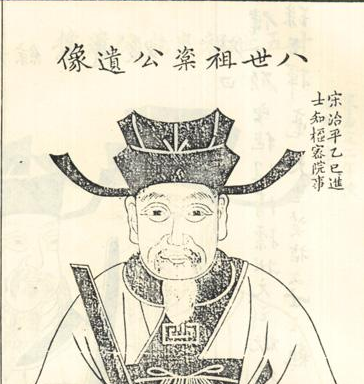 八世祖楶公遺像
宋治平乙巳進
士知樞密院事